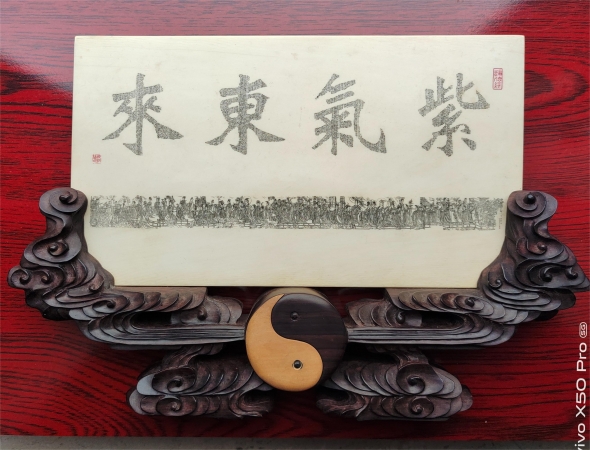 紫氣東來
vivo X50 Pro 5G